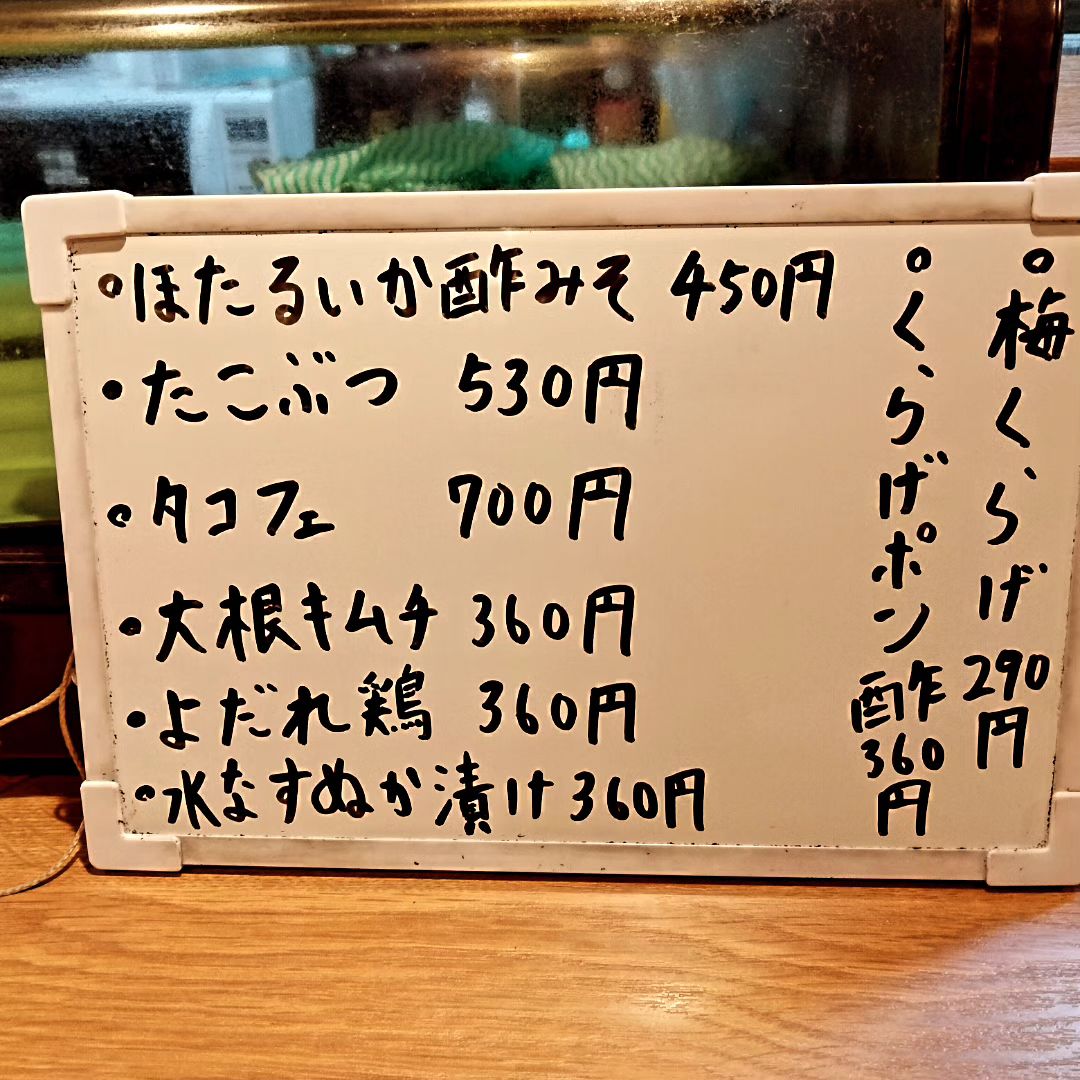 ・ほたるいか酢みそ 450円
・たこぶつ 530円
・タコフェ 700円
・大根キムチ 360円
・よだれ鶏 360円
・水なすぬか漬け 360円
・梅くらげ 290円
・くらげポン酢 360円